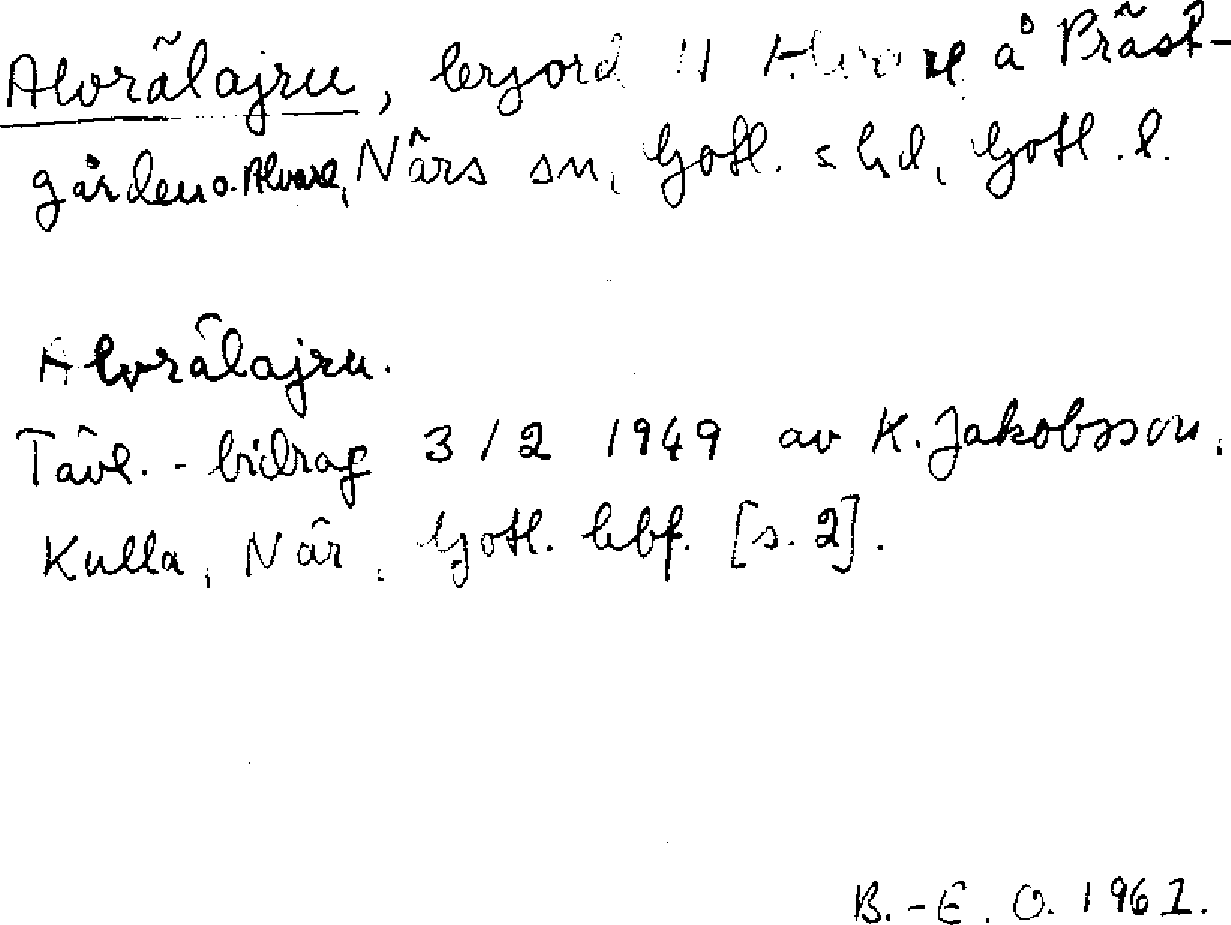 Alvrälajru, lerjord å Präst-
gården o. Alvare, Närs sn, Gotl. s hd, Gotl. l.
Alvrälajru.
Tävl.-bidrag 3/2 1949 av K. Jakobsson,
Kulla, När. Gotl. hbf. [s. 2].
B.-E. O. 1961.